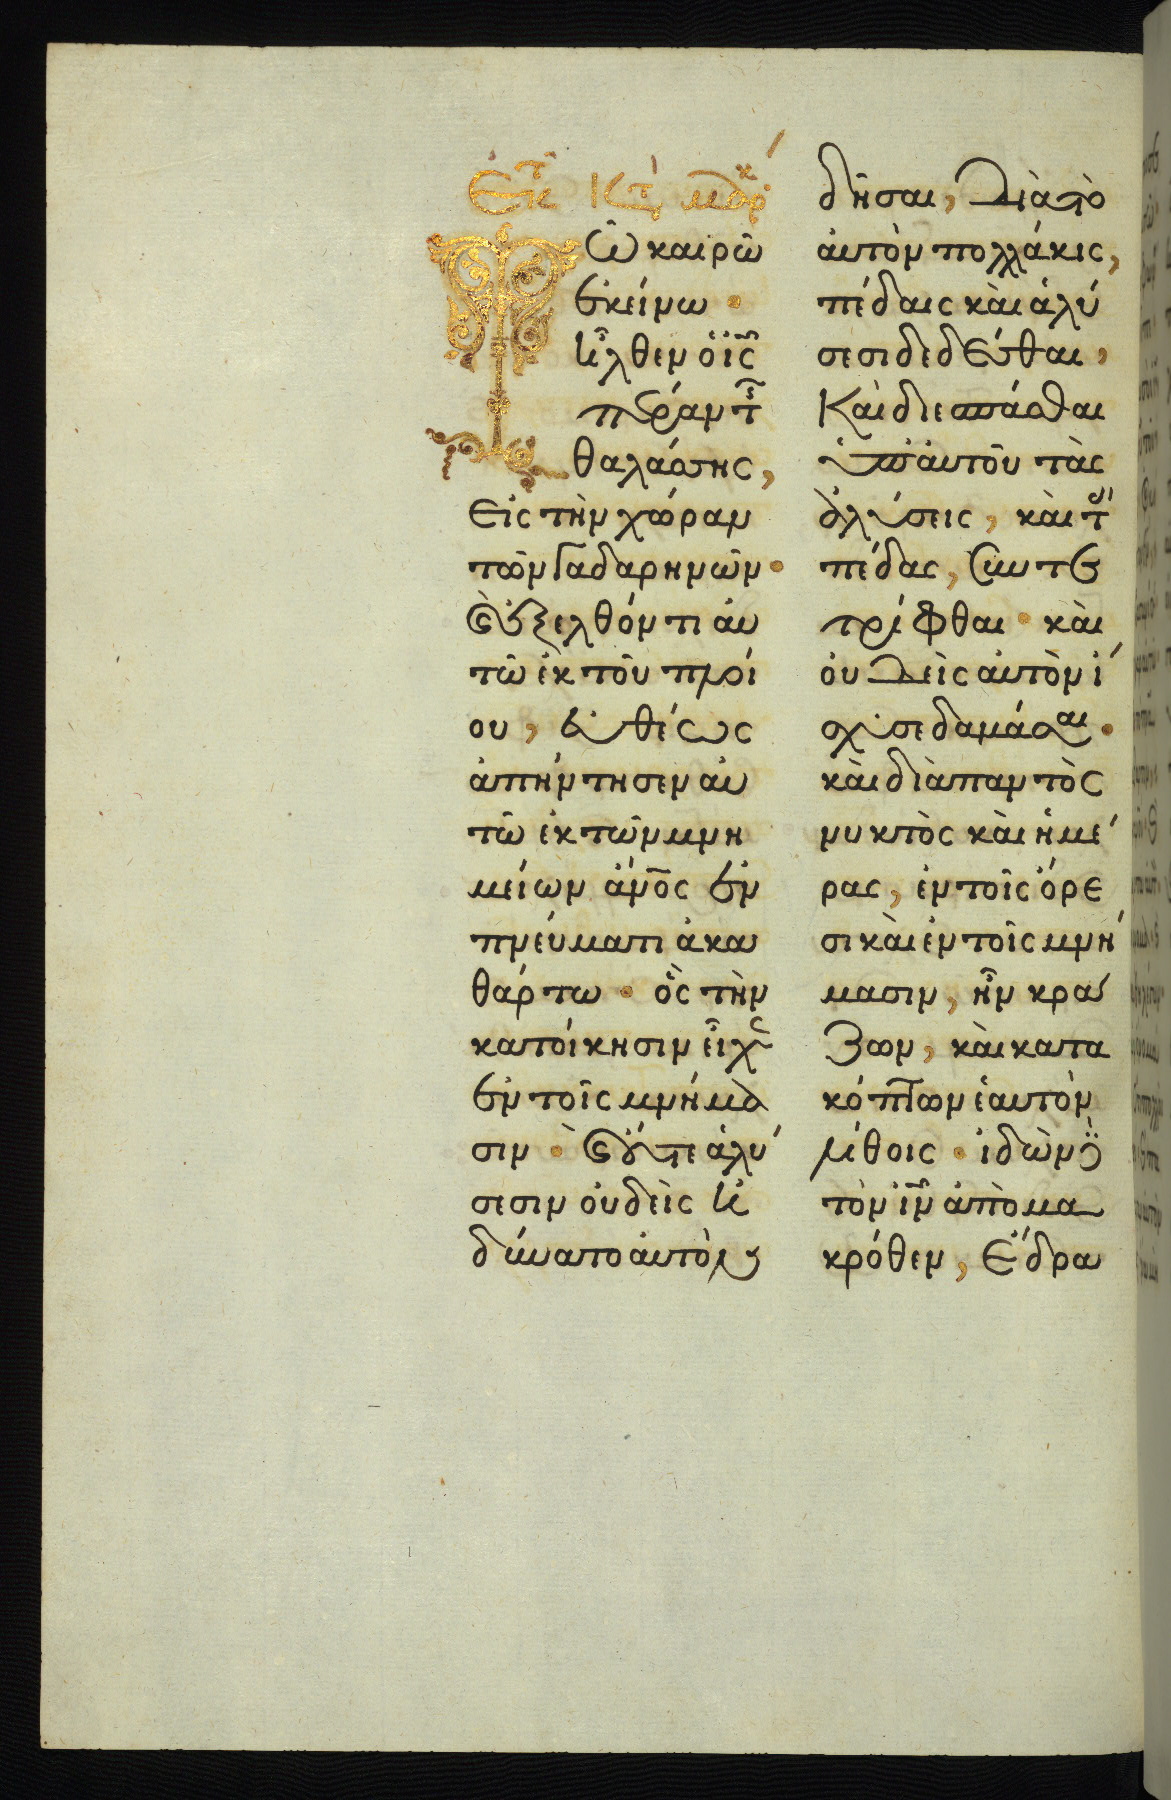 Ἐκ τ Κτ μαρκ
Τῶ καιρῶ
ἐκείνω ·
ἦλθεν ὁ ις
πέραν τ
θαλάσσης,
Εἰς τὴν χώραν
τῶν Γαδαρηνῶν ·
καὶ ἐξελθόντι αυ
τῶ ἐκ τοῦ πλοί
ου, εὐθέως
ἀπήντησεν αὐ
τῶ ἐκ τῶν μνη
μείων ἀνος ἐν
πνεύματι ἀκα
θάρτω · ὃς τὴν
κατοίκησιν εἶχεν
ἐν τοῖς μνήμα
σιν · καὶ οὔτε ἁλύ
σεσιν οὐδεὶς ἠ
δύνατο αὐτὸν
δῆσαι, Διὰ τὸ
αὐτὸν πολλάκις,
πέδαις καὶ ἁλύ
σεσι δεδέσθαι,
Καὶ διεσπάσθαι
ὑπ' ἀυτοῦ τὰς
ἁλύσεις, καὶ τ
πέδας, Συντε
τρίφθαι · καὶ
οὐδεὶς αὐτὸν ἴ
σχυσε δαμάσαι ·
καὶ διὰ παντὸς
νυκτὸς καὶ ἡμέ
ρας, ἐν τοῖς ὄρε
σι καὶ ἐν τοῖς μνή
μασιν, ἦν κρά
ζων, καὶ κατα
κόπτων ἑαυτὸν
λίθοις · ἰδὼν δὲ
τὸν ιν ἀπὸ μα
κρόθεν, Ἔδρα